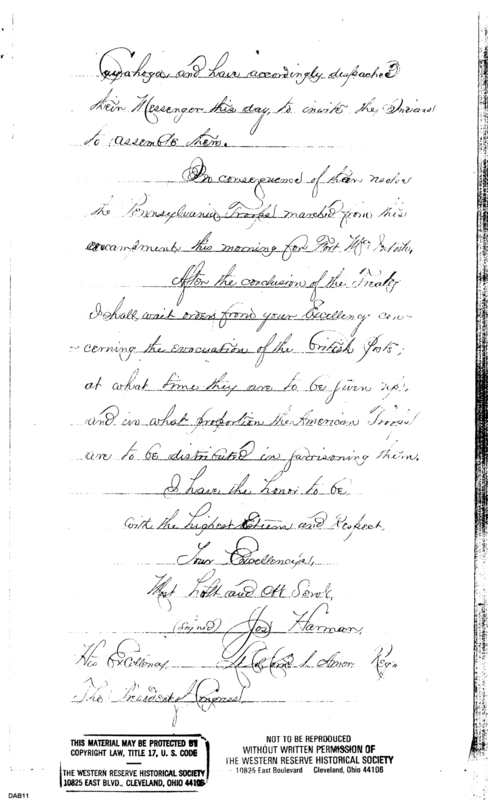 Cuyahoga, and have accordingly despached
their Messenger this day, to invite the Indians
to assemble them.
In consequence of their notice
the Pennsylvania Troops marched from this
encampment this morning for Fort McIntosh,
After the conclusion of the Treaty
I shall wait orders from your Excellency con-
-cerning the evacuation of the British Posts;
at what time they are to be given up,
and in what proportion the American Troops
are to be distributed in garrisoning them.
I have the honor to be
with the highest Esteem and Respect,
Your Excellencys,
Most and Ob Servt,
(signed) Jos Harman,
His Excellency Lt Col Comt 1 Amer Regn
The President of Congress
THIS MATERIAL MAY BE PROTECTED BY
COPYRIGHT LAW, TITLE 17, U. S. CODE
THE WESTERN RESERVE HISTORICAL SOCIETY
10825 EAST BLVD., CLEVELAND, OHIO 44106
NOT TO BE REPRODUCED
WITHOUT WRITTEN PERMISSION OF
THE WESTERN RESERVE HISTORICAL SOCIETY
10825 East Boulevard Cleveland, Ohio 44106
DAB11